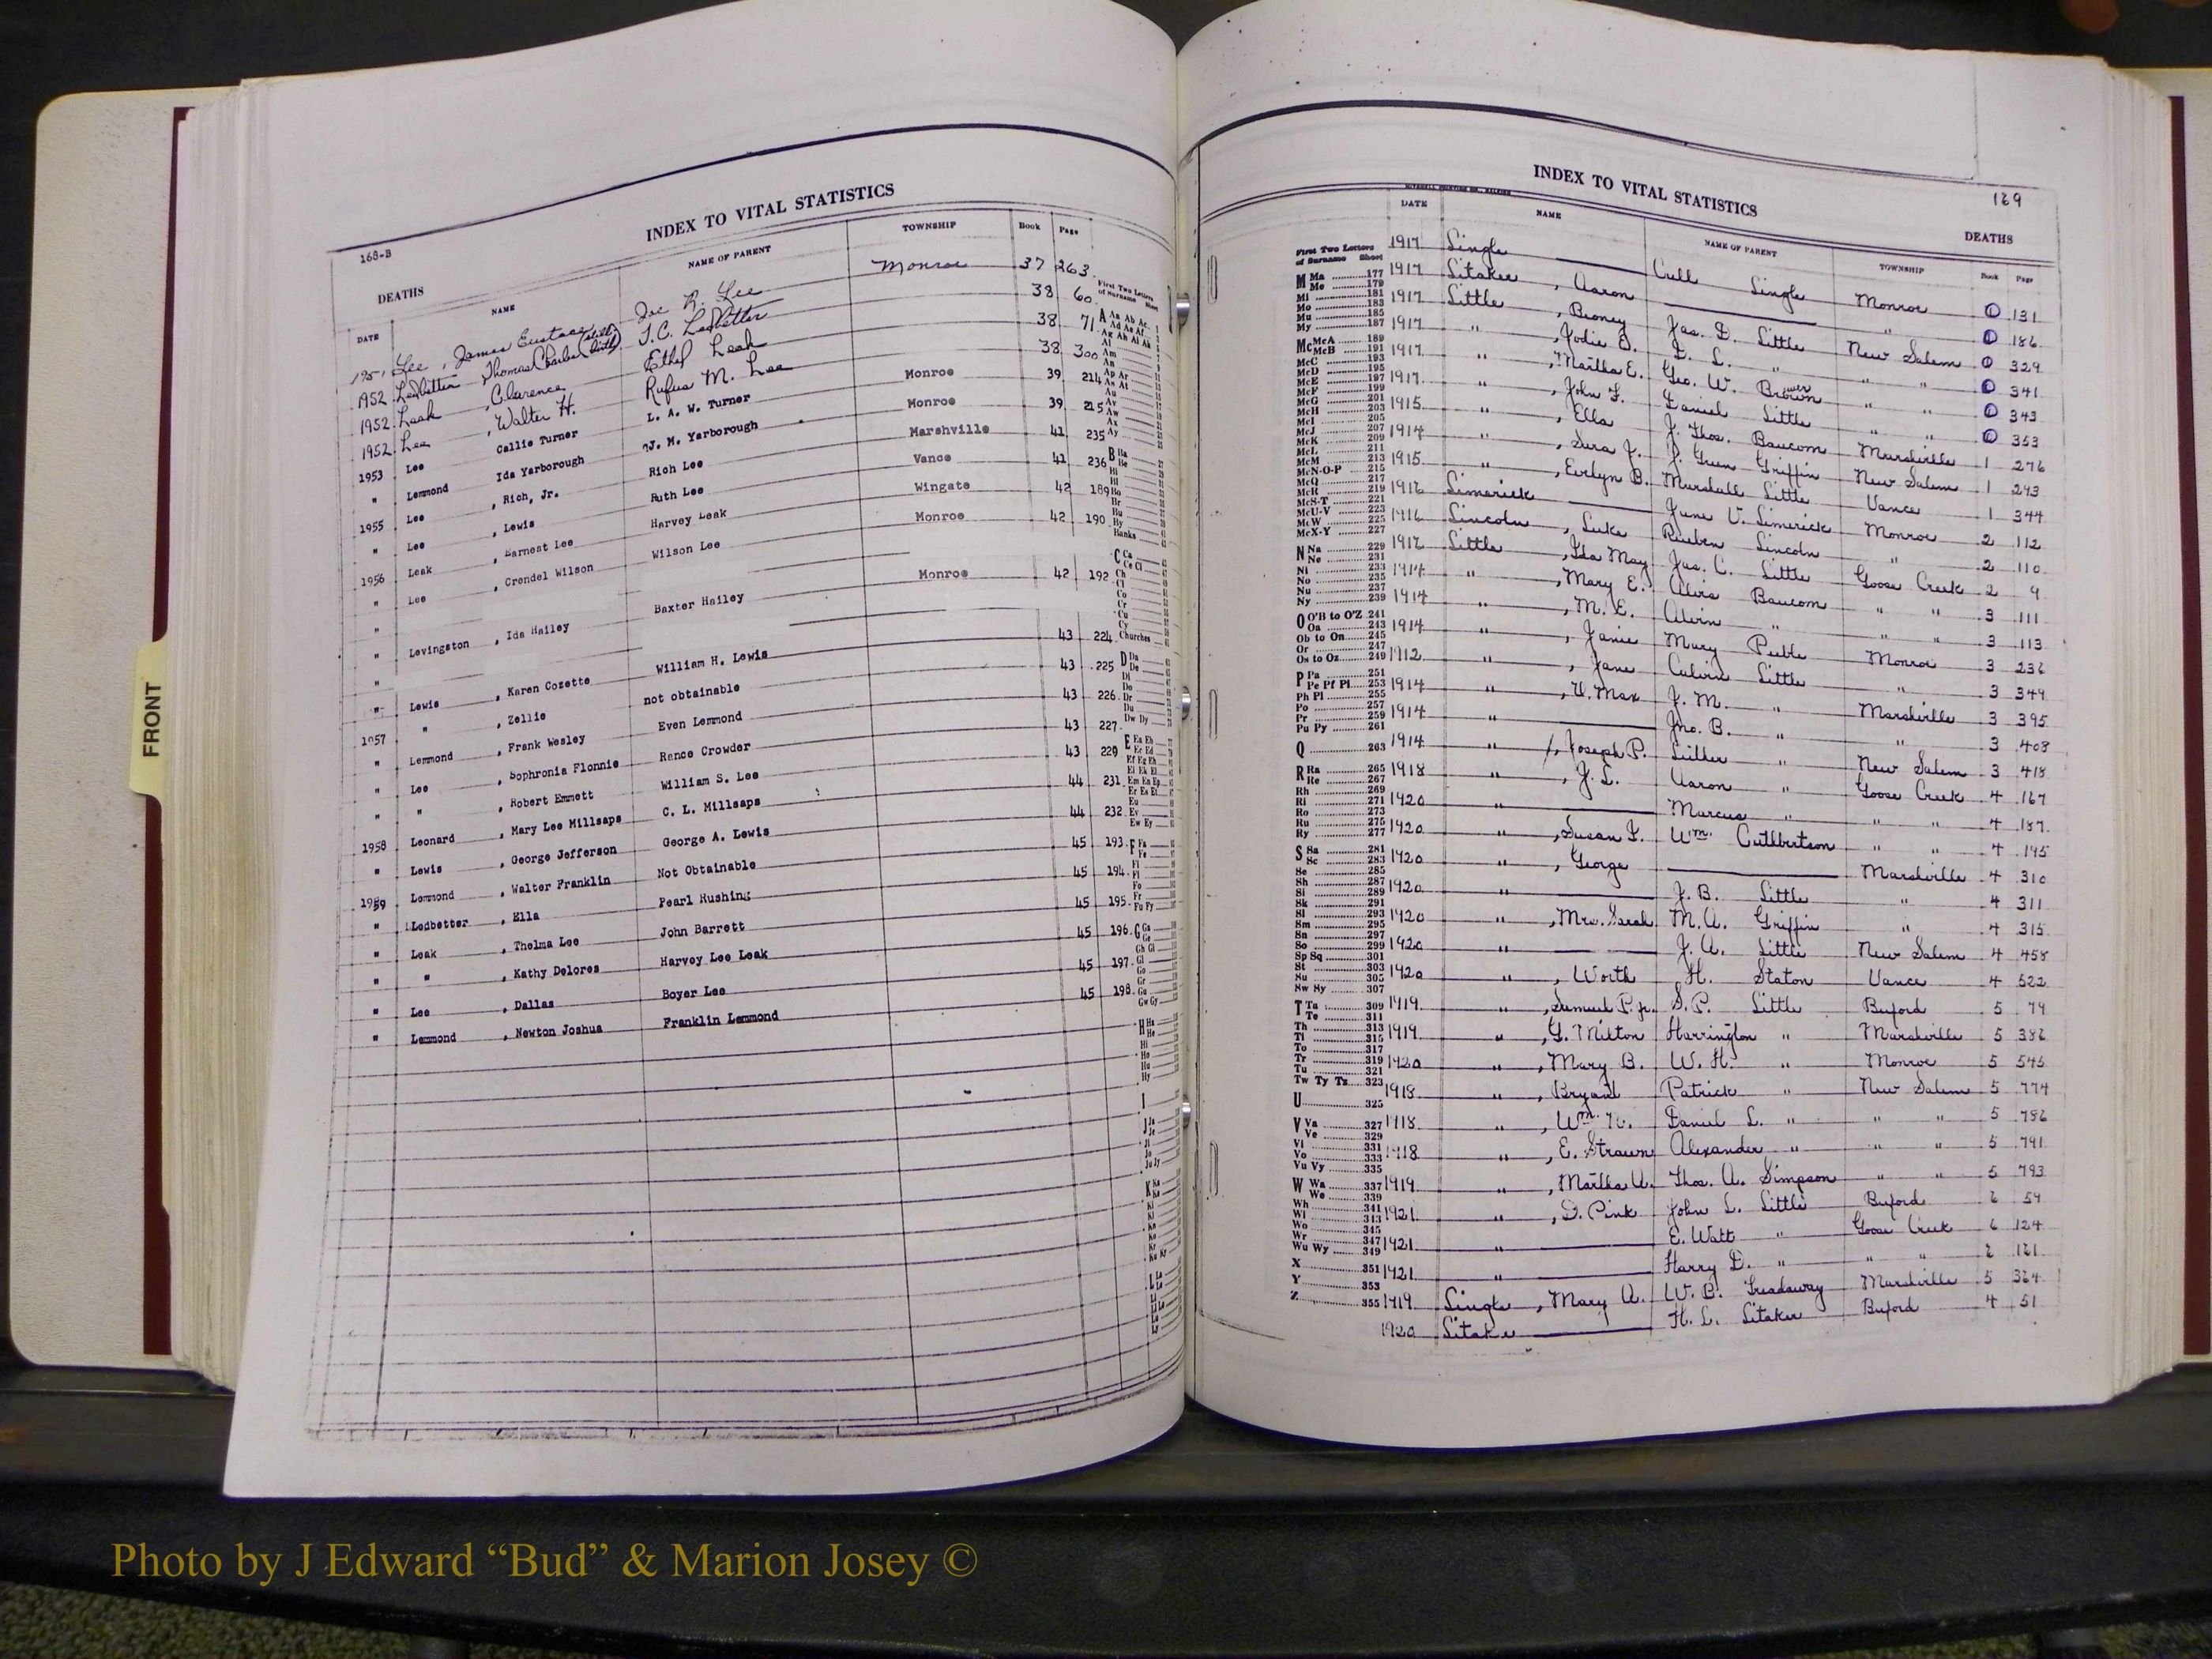 FRONT
168-B
INDEX TO VITAL STATISTICS
DEATHS
DATE NAME NAME OF PARENT TOWNSHIP Book Page
1951 Lee , James Eustace Joe R. Lee Monroe 37 263
1952 Ledbetter Thomas Charles T. C. Ledbetter 38 60
1952 Leak , Clarence Ethel Leak 38 71
1952 Lee , Walter H. Rufus M. Lee 38 300
1953 Lee Callie Turner L. A. W. Turner Monroe 39 214
" Lemmond Ida Yarborough J. M. Yarborough Monroe 39 215
1955 Lee , Rich, Jr. Rich Lee Marshville 41 235
" Lee , Lewis Ruth Lee Vance 41 236
1956 Leak Earnest Lee Harvey Leak Wingate 42 189
" Lee , Crendel Wilson Wilson Lee Monroe 42 190
"
" Levingston , Ida Hailey Baxter Hailey Monroe 42 192
"
" Lewis , Karen Cozette William H. Lewis 43 224
1957 " , Zellie not obtainable 43 225
" Lemmond , Frank Wesley Even Lemmond 43 226
" Lee , Sophronia Flonnie Rance Crowder 43 227
" " , Robert Emmett William S. Lee 43 229
1958 Leonard , Mary Lee Millsaps C. L. Millsaps 44 231
" Lewis , George Jefferson George A. Lewis 44 232
1959 Lemmond , Walter Franklin Not Obtainable 45 193
" Ledbetter , Ella Pearl Rushing 45 194
" Leak , Thelma Lee John Barrett 45 195
" " , Kathy Delores Harvey Lee Leak 45 196
" Lee , Dallas Boyer Lee 45 197
" Lemmond , Newton Joshua Franklin Lemmond 45 198
First Two Letters
of Surname Sheet
INDEX TO VITAL STATISTICS
169
DEATHS
DATE NAME NAME OF PARENT TOWNSHIP Book Page
1917 Lingle Cull Lingle Monroe 1 131
1917 Litaker , Aaron " 1 186
1917 Little , Beoney Jas. D. Little New Salem 1 329
1917 " , Jodie D. D. L. " " " 1 341
1917 " , Martha E. Geo. W. Brown " " 1 343
1917 " , John F. Daniel Little " " 1 353
1915 " , Ella J. Thos. Baucom Marshville 1 276
1914 " , Sura J. J. Green Griffin New Salem 1 243
1915 " , Evelyn B. Marshall Little Vance 1 344
1916 Limerick June V. Limerick Monroe 2 112
1916 Lincoln , Luke Reuben Lincoln " 2 110
1916 Little , Ida May Jas. C. Little Goose Creek 2 9
1914 " , Mary E. Alvis Baucom " " 3 111
1914 " , M. E. Alvin " " " 3 113
1914 " , Janie Mary Peeble Monroe 3 236
1912 " , Jane Calvin Little " 3 349
1914 " , U. Max J. M. " Marshville 3 395
1914 " Jno. B. " " 3 408
1914 " , Joseph P. Luther " New Salem 3 418
1918 " , J. L. Aaron " Goose Creek 4 167
1920 " Marcus " " " 4 187
1920 " , Susan F. Wm. Cuthbertson " " 4 195
1920 " , George Marshville 4 310
1920 " J. B. Little " 4 311
1920 " , Mrs. Sarah M. A. Griffin " 4 315
1920 " J. A. Little New Salem 4 458
1920 " , Worth H. Staton Vance 4 522
1919 " , Samuel P. Jr. S. P. Little Buford 5 79
1919 " , G. Milton Harrington " Marshville 5 386
1920 " , Mary B. W. H. " Monroe 5 545
1918 " , Bryant Patrick " New Salem 5 774
1918 " , Wm. N. Daniel L. " " " 5 786
1918 " , E. Strawn Alexander " " " 5 791
1919 " , Martha A. Thos. A. Simpson " " 5 793
1921 " , D. Pink John L. Little Buford 6 59
1921 " E. Watt " Goose Creek 6 124
1921 " Harry D. " " " 6 161
1919 Lingle , Mary A. W. B. Treadaway Marshville 5 364
1920 Litaker H. L. Litaker Buford 4 51
First Two Letters
of Surname Sheet
M Ma 177
Me 179
Mi 181
Mo 183
Mu 185
My 187
Mc McA 189
McB 191
McC 193
McD 195
McE 197
McF 199
McG 201
McH 203
McI 205
McJ 207
McK 209
McL 211
McM 213
McN-O-P 215
McQ 217
McR 219
McS-T 221
McU-V 223
McW 225
McX-Y 227
N Na 229
Ne 231
Ni 233
No 235
Nu 237
Ny 239
O O'B to O'Z 241
Oa 243
Ob to On 245
Or 247
Os to Oz 249
P Pa 251
Pe Pf Pl 253
Ph Pl 255
Po 257
Pr 259
Pu Py 261
Q 263
R Ra 265
Re 267
Rh 269
Ri 271
Ro 273
Ru 275
Ry 277
S Sa 281
Sc 283
Se 285
Sh 287
Si 289
Sk 291
Sl 293
Sm 295
Sn 297
So 299
Sp Sq 301
St 303
Su 305
Sw Sy 307
T Ta 309
Te 311
Th 313
Ti 315
To 317
Tr 319
Tu 321
Tw Ty Tz 323
U 325
V Va 327
Ve 329
Vi 331
Vo 333
Vu Vy 335
W Wa 337
We 339
Wh 341
Wi 343
Wo 345
Wr 347
Wu Wy 349
X 351
Y 353
Z 355
Photo by J Edward “Bud” & Marion Josey ©